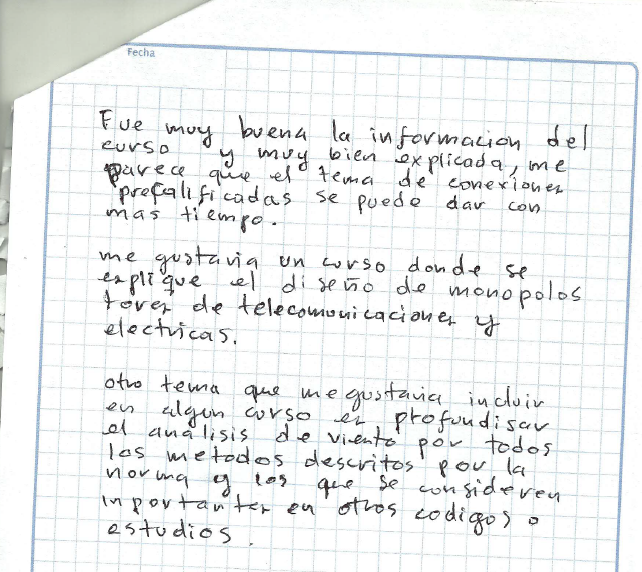 Fecha
Fue muy buena la informacion del
curso y muy bien explicada, me
parece que el tema de conexiones
prefalificadas se puede dar con
mas tiempo.
me gustaria un curso donde se
explique el diseño de monopolos
torres de telecomunicaciones y
electricas.
otro tema que me gustaria incluir
en algun curso es profundisar
el análisis de viento por todos
los metodos descritos por la
norma y los que se consideren
inportantes en otros codigos o
estudios.